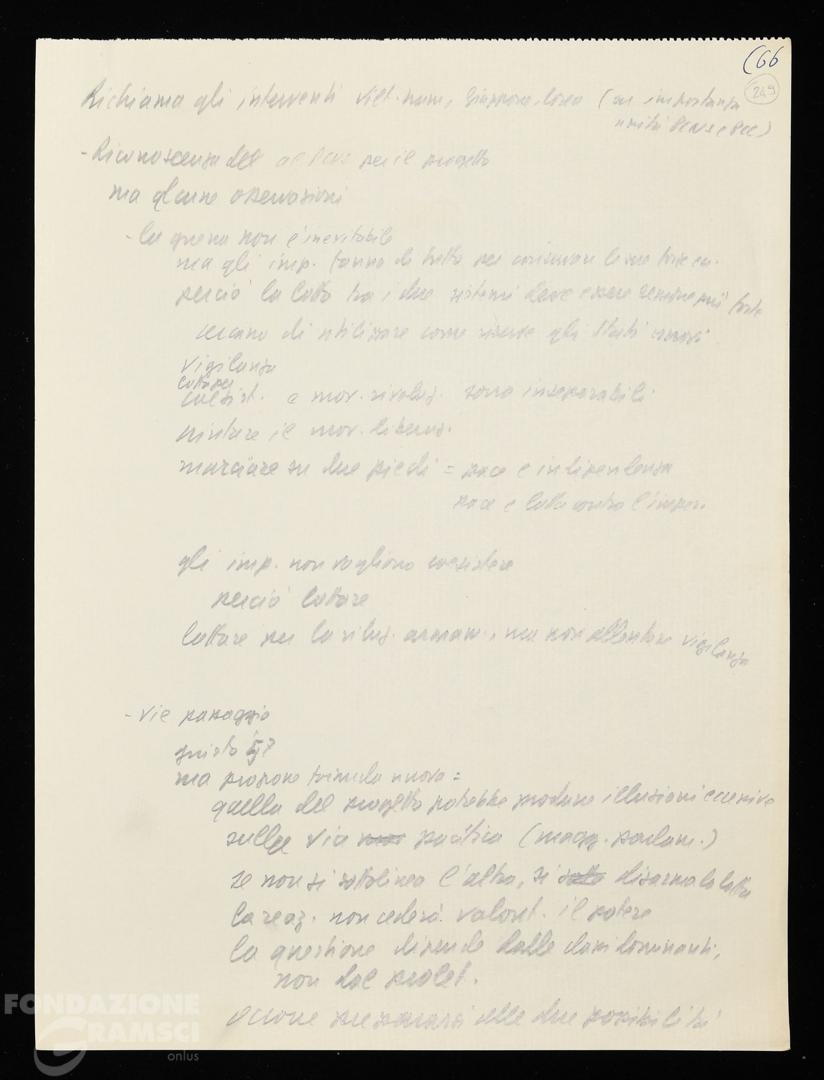 (66
249
Richiama gli interventi Viet-nam, Giappone, Corea (su importanza
unità PCUS e PCC)
- Riconoscenza del al PCUS per il progetto
ma alcune osservazioni
- la guerra non è inevitabile
ma gli imp. fanno di tutto per conservare le sue
perciò la lotta tra i due sistemi deve essere sempre più forte
cercano di utilizzare come riserve gli Stati nuovi
vigilanza
lotta per
coesist. e mov. rivoluz. sono inseparabili
aiutare il mov. liberaz.
marciare su due piedi = pace e indipendenza
pace e lotta contro l'imper.
gli imp. non vogliono coesistere
perciò lottare
lottare per la riduz. armam., ma non allentare vigilanza
- Vie passaggio
giusto
ma propone formula nuova =
quella del progetto potrebbe produrre illusioni eccessive
sulla via pacifica (magg. parlam.)
se non si sottolinea l'altra, si disarma la lotta
la reaz. non cederà valont. il potere
la questione dipende dalle classi dominanti,
non dal prolet.
occorre prepararsi alle due possibilità
FONDAZIONE
GRAMSCI
onlus